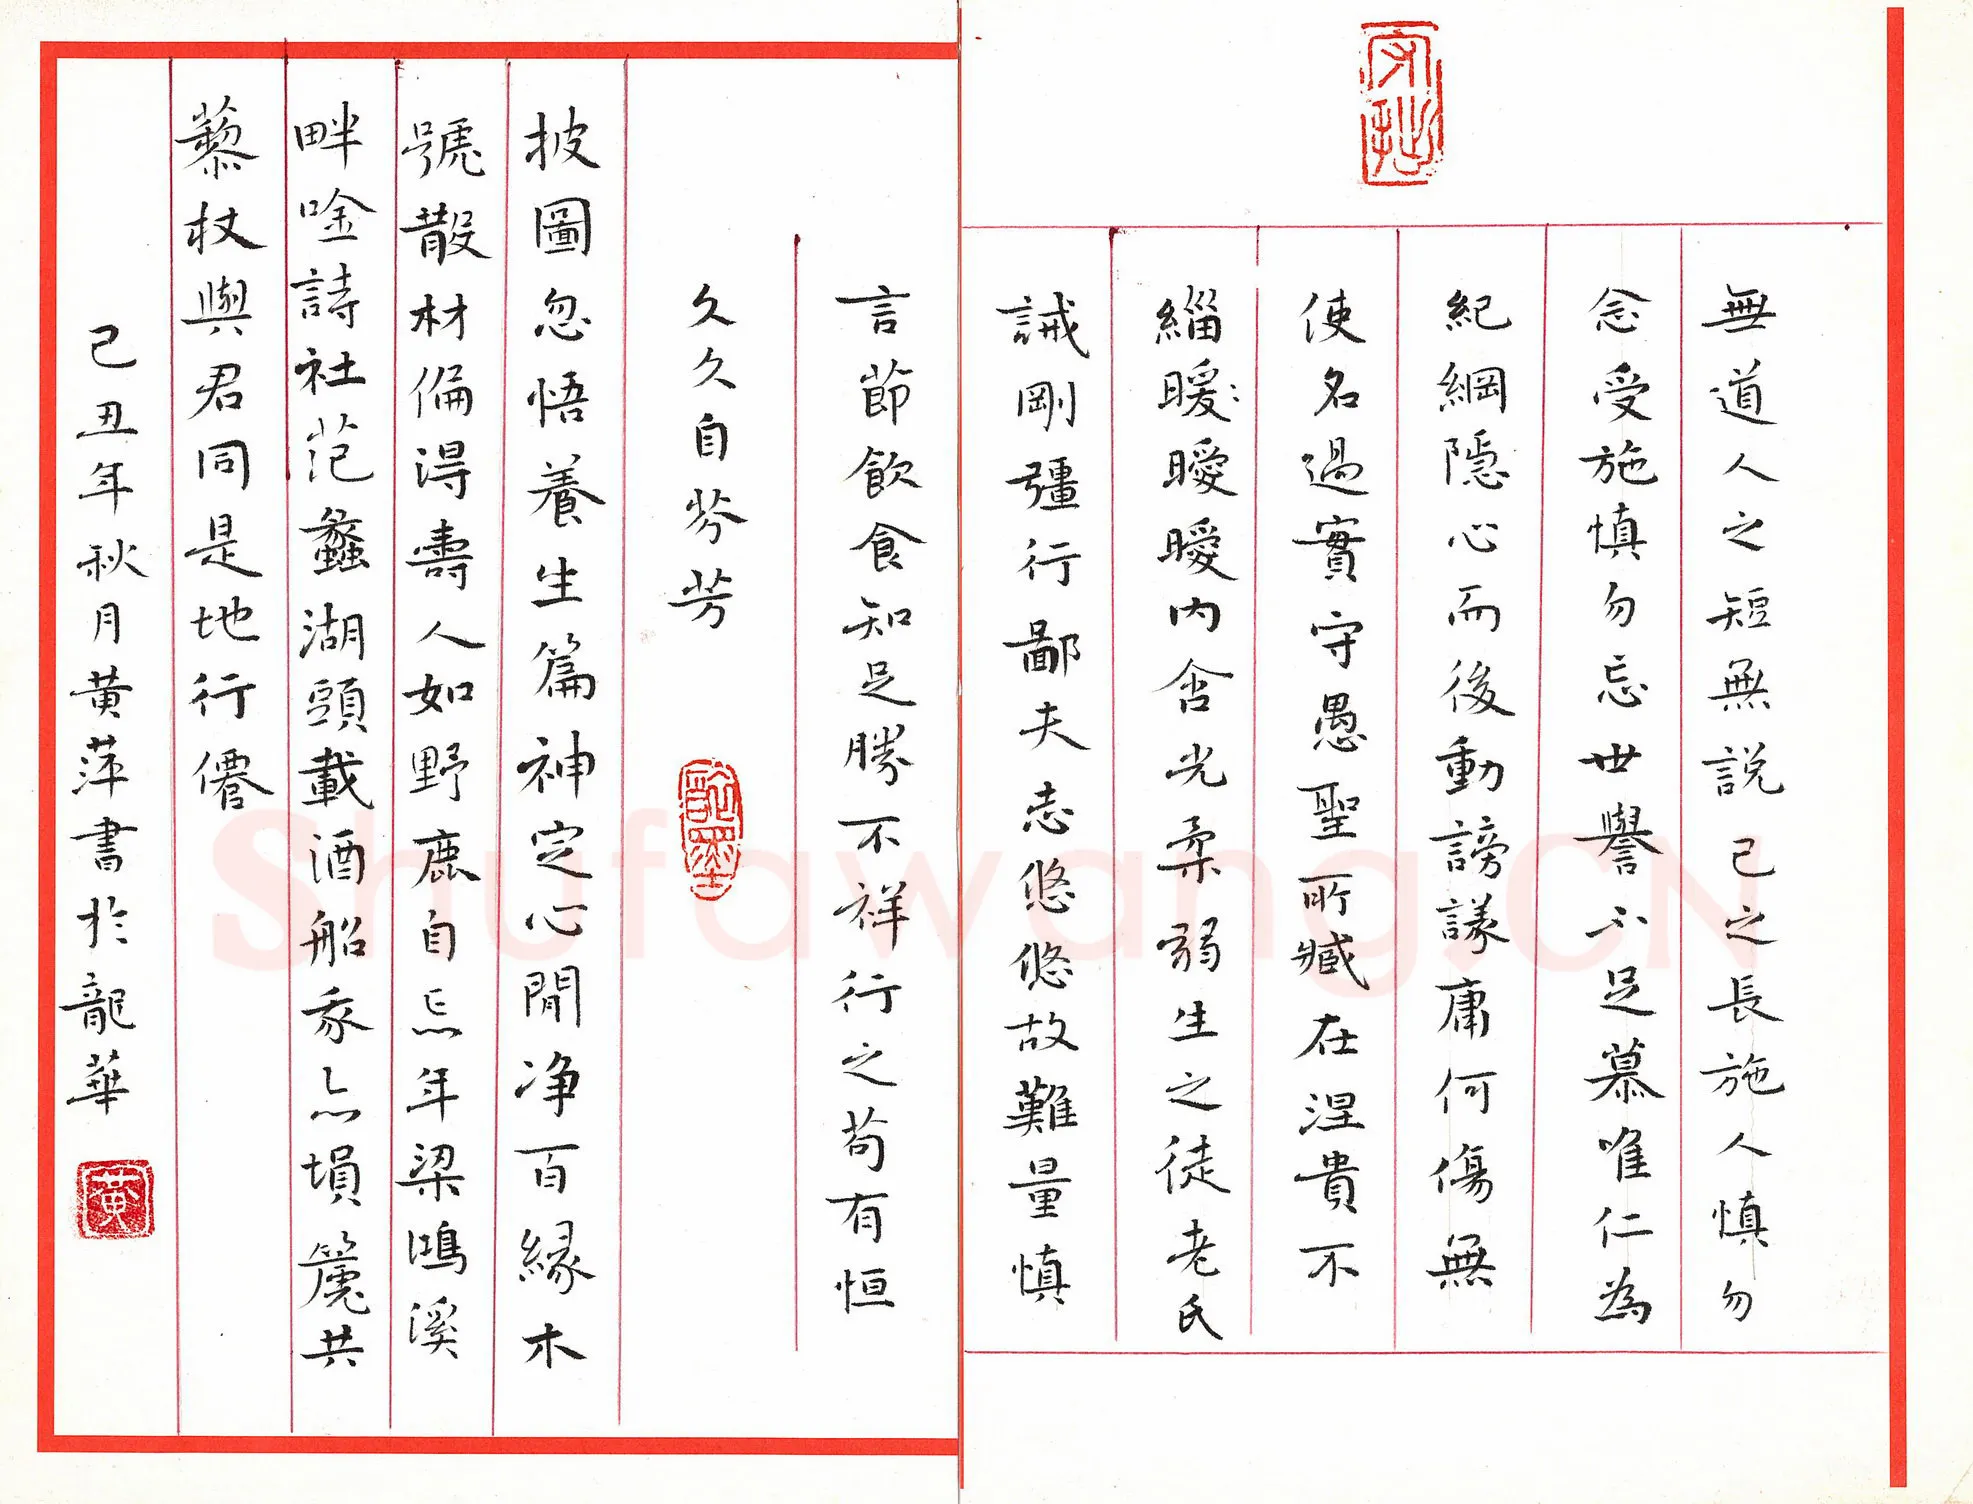 無道人之短無説己之長施人慎勿
念受施慎勿忘世譽不足慕唯仁為
紀綱隱心而後動謗議庸何傷無
使名過實守愚聖所臧在涅貴不
緇暖曖曖內含光柔弱生之徒老氏
誡剛彊行鄙夫志悠悠故難量慎
言節飲食知足勝不祥行之苟有恒
久久自芬芳
披圖忽悟養生篇神定心閒净百緣木
號散材偏得壽人如野鹿自忘年梁鴻溪
畔唫詩社范蠡湖頭載酒船我亦塤篪共
藜杖與君同是地行僊
己丑年秋月黄萍書於龍華
黃
Shufawang.CN